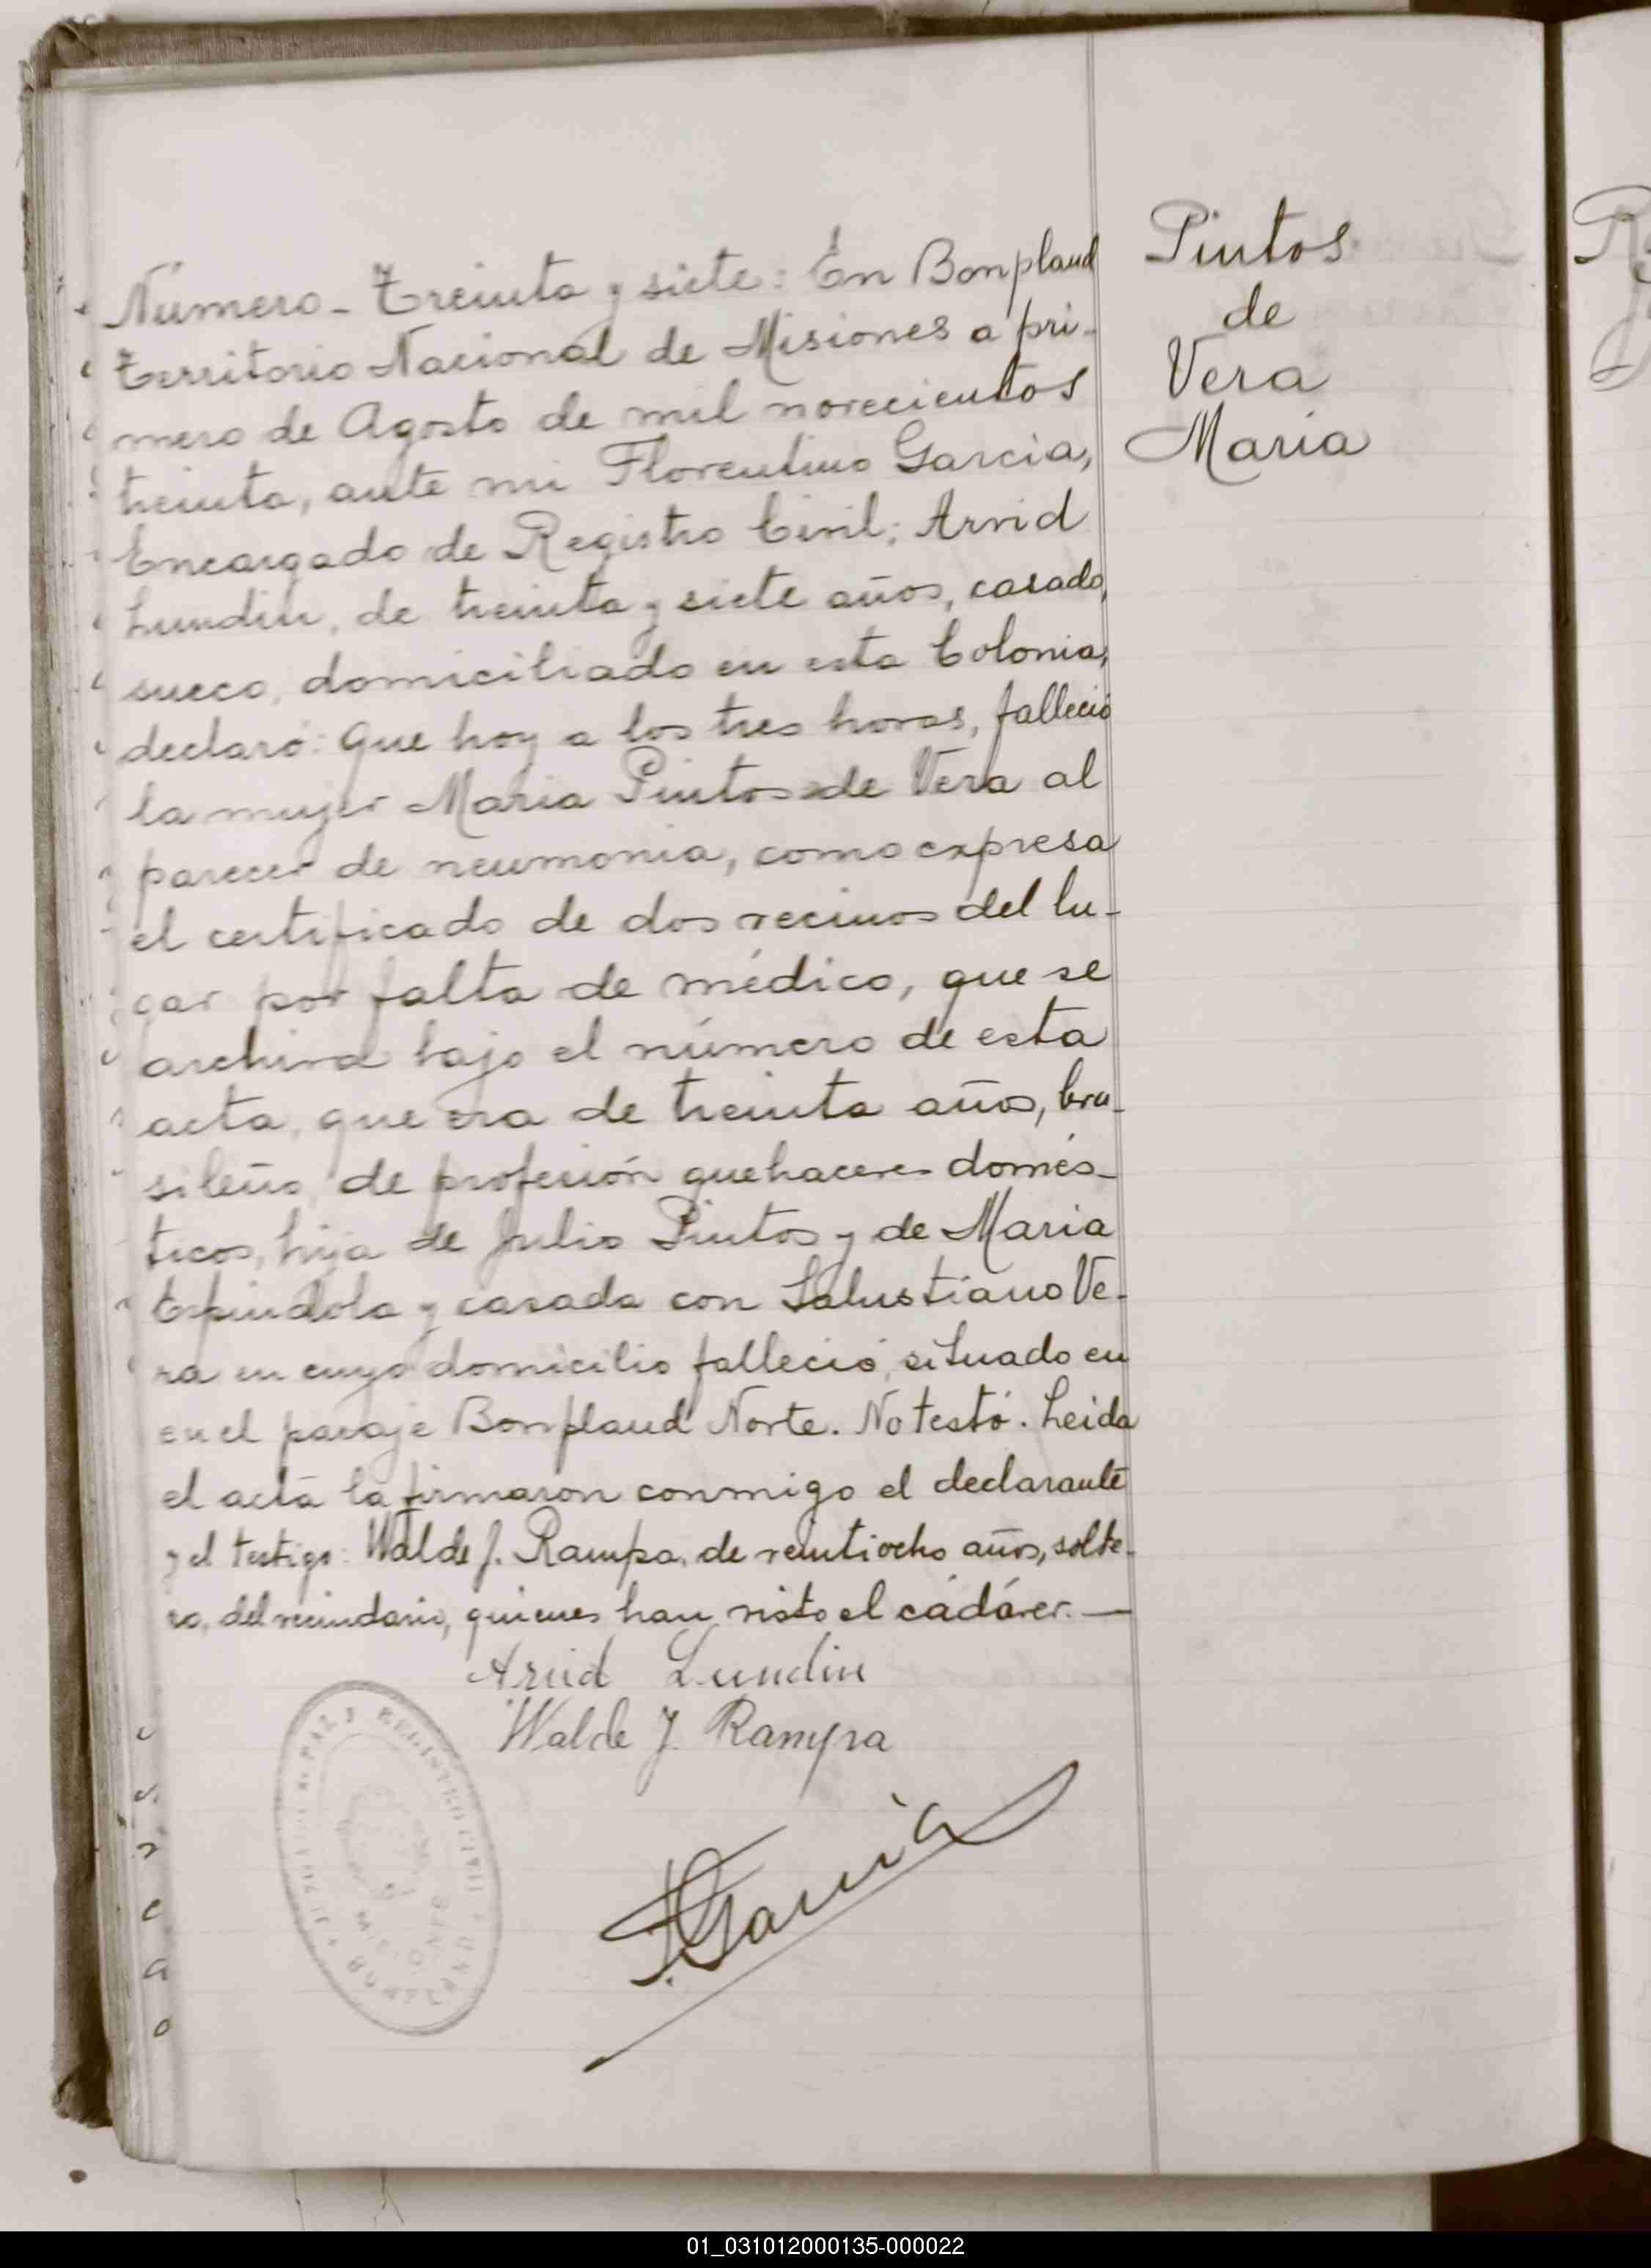 Número - Treinta y siete: En Bonpland
territorio Nacional de Misiones a pri-
mero de Agosto de mil novecientos
treinta, ante mi Florentino Garcia,
Encargado de Registro Civil; Arvid
Lundin, de treinta y siete años, casado,
sueco, domiciliado en esta Colonia,
declaró: Que hoy a los tres horas, falleció
la mujer Maria Pintos de Vera al
parecer de neumonia, como expresa
el certificado de dos vecinos del lu-
gar por falta de médico, que se
archiva bajo el número de esta
acta, que era de treinta años, bra-
sileña, de profesión quehaceres domés-
ticos, hija de Julio Pintos y de Maria
Espindola y casada con Salustiano Ve-
ra en cuyo domicilio falleció, situado en
en el paraje Bonpland Norte. No testó. Leida
el acta la firmaron conmigo el declarante
y el testigo: Walde J. Rampa, de veintiocho años, solte-
ro, del vecindario, quienes han visto el cadáver.—
Arvid Lundin
Walde J. Rampa
F. Garcia
PAZ Y REGISTRO CIVIL
BONPLAND
MISIONES
Pintos
de
Vera
Maria
01_031012000135-000022